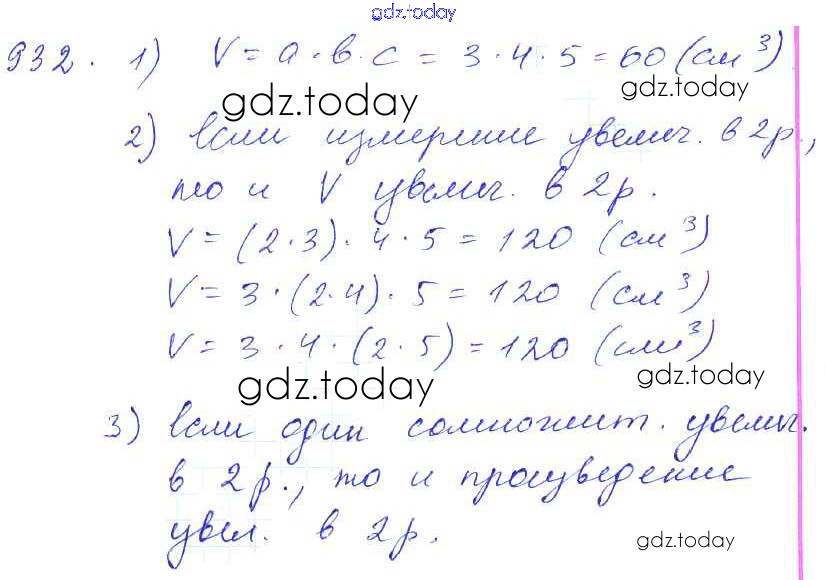 gdz.today
932. 1) V = a · b · c = 3 · 4 · 5 = 60 (см³)
gdz.today
gdz.today
2) Если измерение увелич. в 2р.,
то и V увелич. в 2р.
V = (2 · 3) · 4 · 5 = 120 (см³)
V = 3 · (2 · 4) · 5 = 120 (см³)
V = 3 · 4 · (2 · 5) = 120 (см³)
gdz.today
gdz.today
3) Если один сомножит. увелич.
в 2р., то и произведение
увел. в 2р.
gdz.today